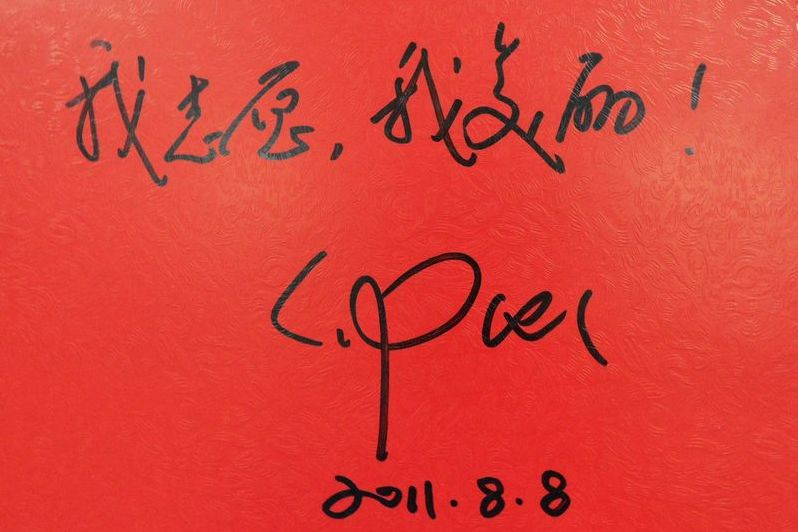 我志愿，我美丽！
2011.8.8